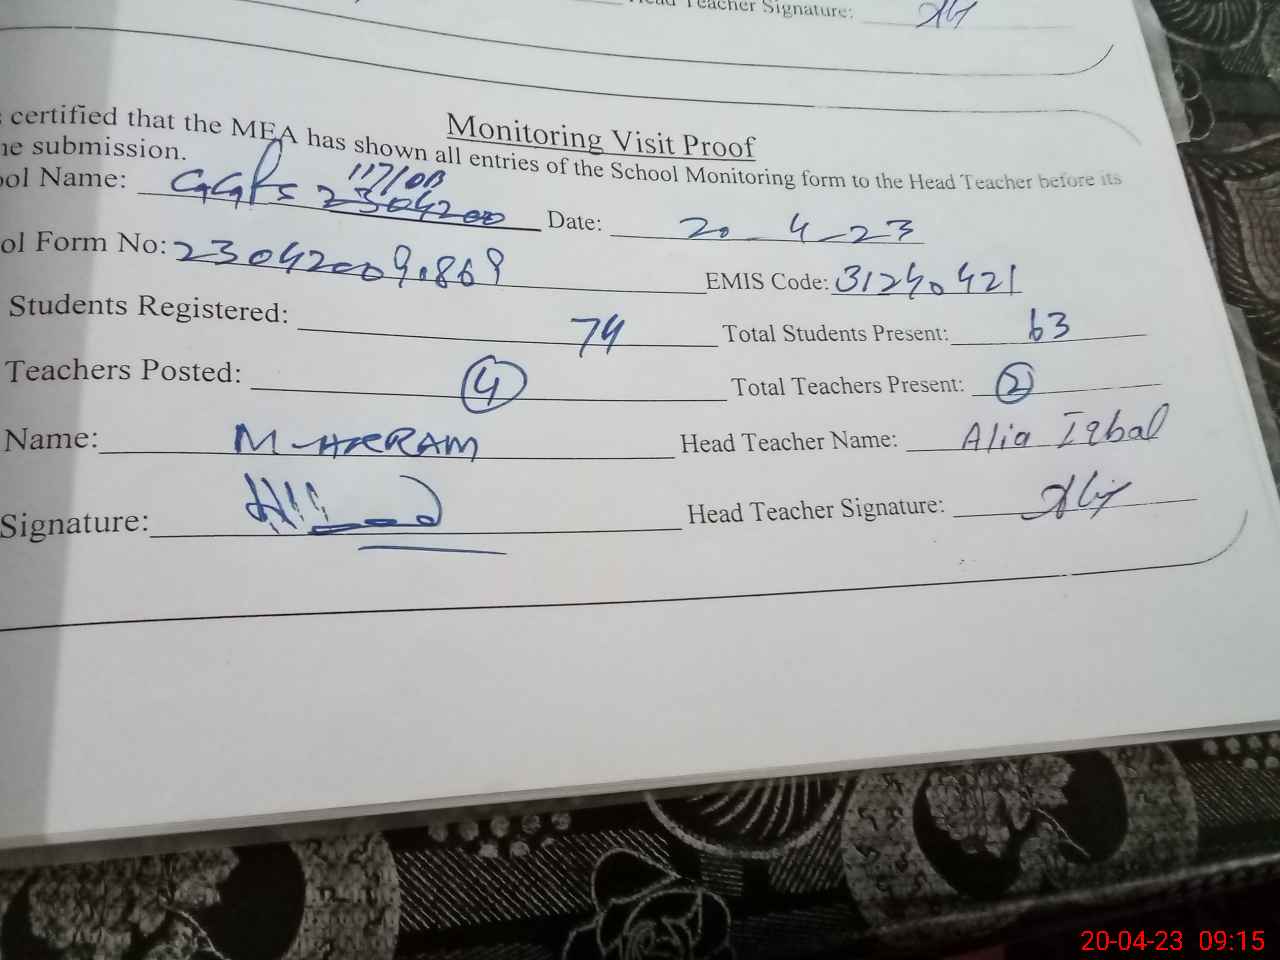 Head Teacher Signature:
Monitoring Visit Proof
certified that the MEA has shown all entries of the School Monitoring form to the Head Teacher before its
submission.
ool Name: GGPS 117/DB 2304200 Date: 20-4-23
ol Form No: 230420090869 EMIS Code: 31240421
Students Registered: 74 Total Students Present: 63
Teachers Posted: 4 Total Teachers Present: 2
Name: M AKRAM Head Teacher Name: Alia Iqbal
Signature: Head Teacher Signature:
20-04-23 09:15